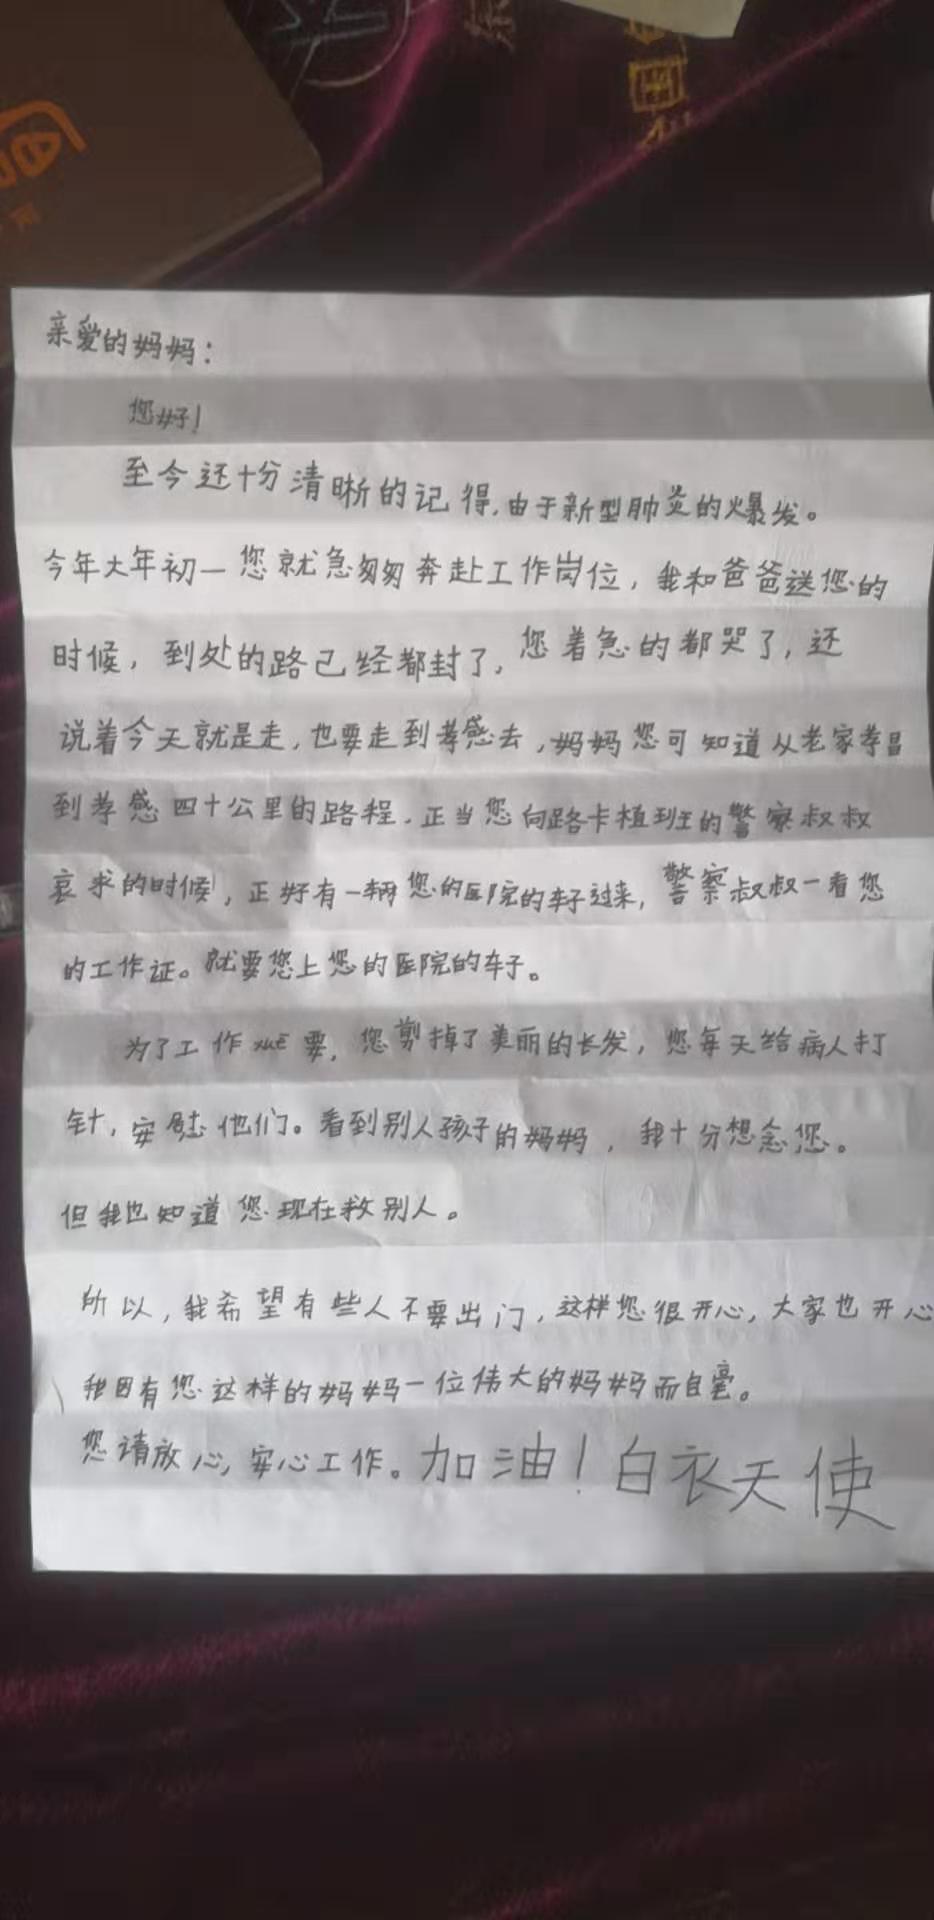 亲爱的妈妈：
您好！
至今还十分清晰的记得，由于新型肺炎的爆发。
今年大年初一您就急匆匆奔赴工作岗位，我和爸爸送您的
时候，到处的路己经都封了，您着急的都哭了，还
说着今天就是走，也要走到孝感去，妈妈您可知道从老家孝昌
到孝感四十公里的路程，正当您向路卡植班的警察叔叔
哀求的时候，正好有一辆您的医院的车子过来，警察叔叔一看您
的工作证。就要您上您的医院的车子。
为了工作xuē要，您剪掉了美丽的长发，您每天给病人打
针，安慰他们。看到别人孩子的妈妈，我十分想念您。
但我也知道您现在救别人。
所以，我希望有些人不要出门，这样您很开心，大家也开心
我因有您这样的妈妈一位伟大的妈妈而自毫。
您请放心，安心工作。加油！白衣天使